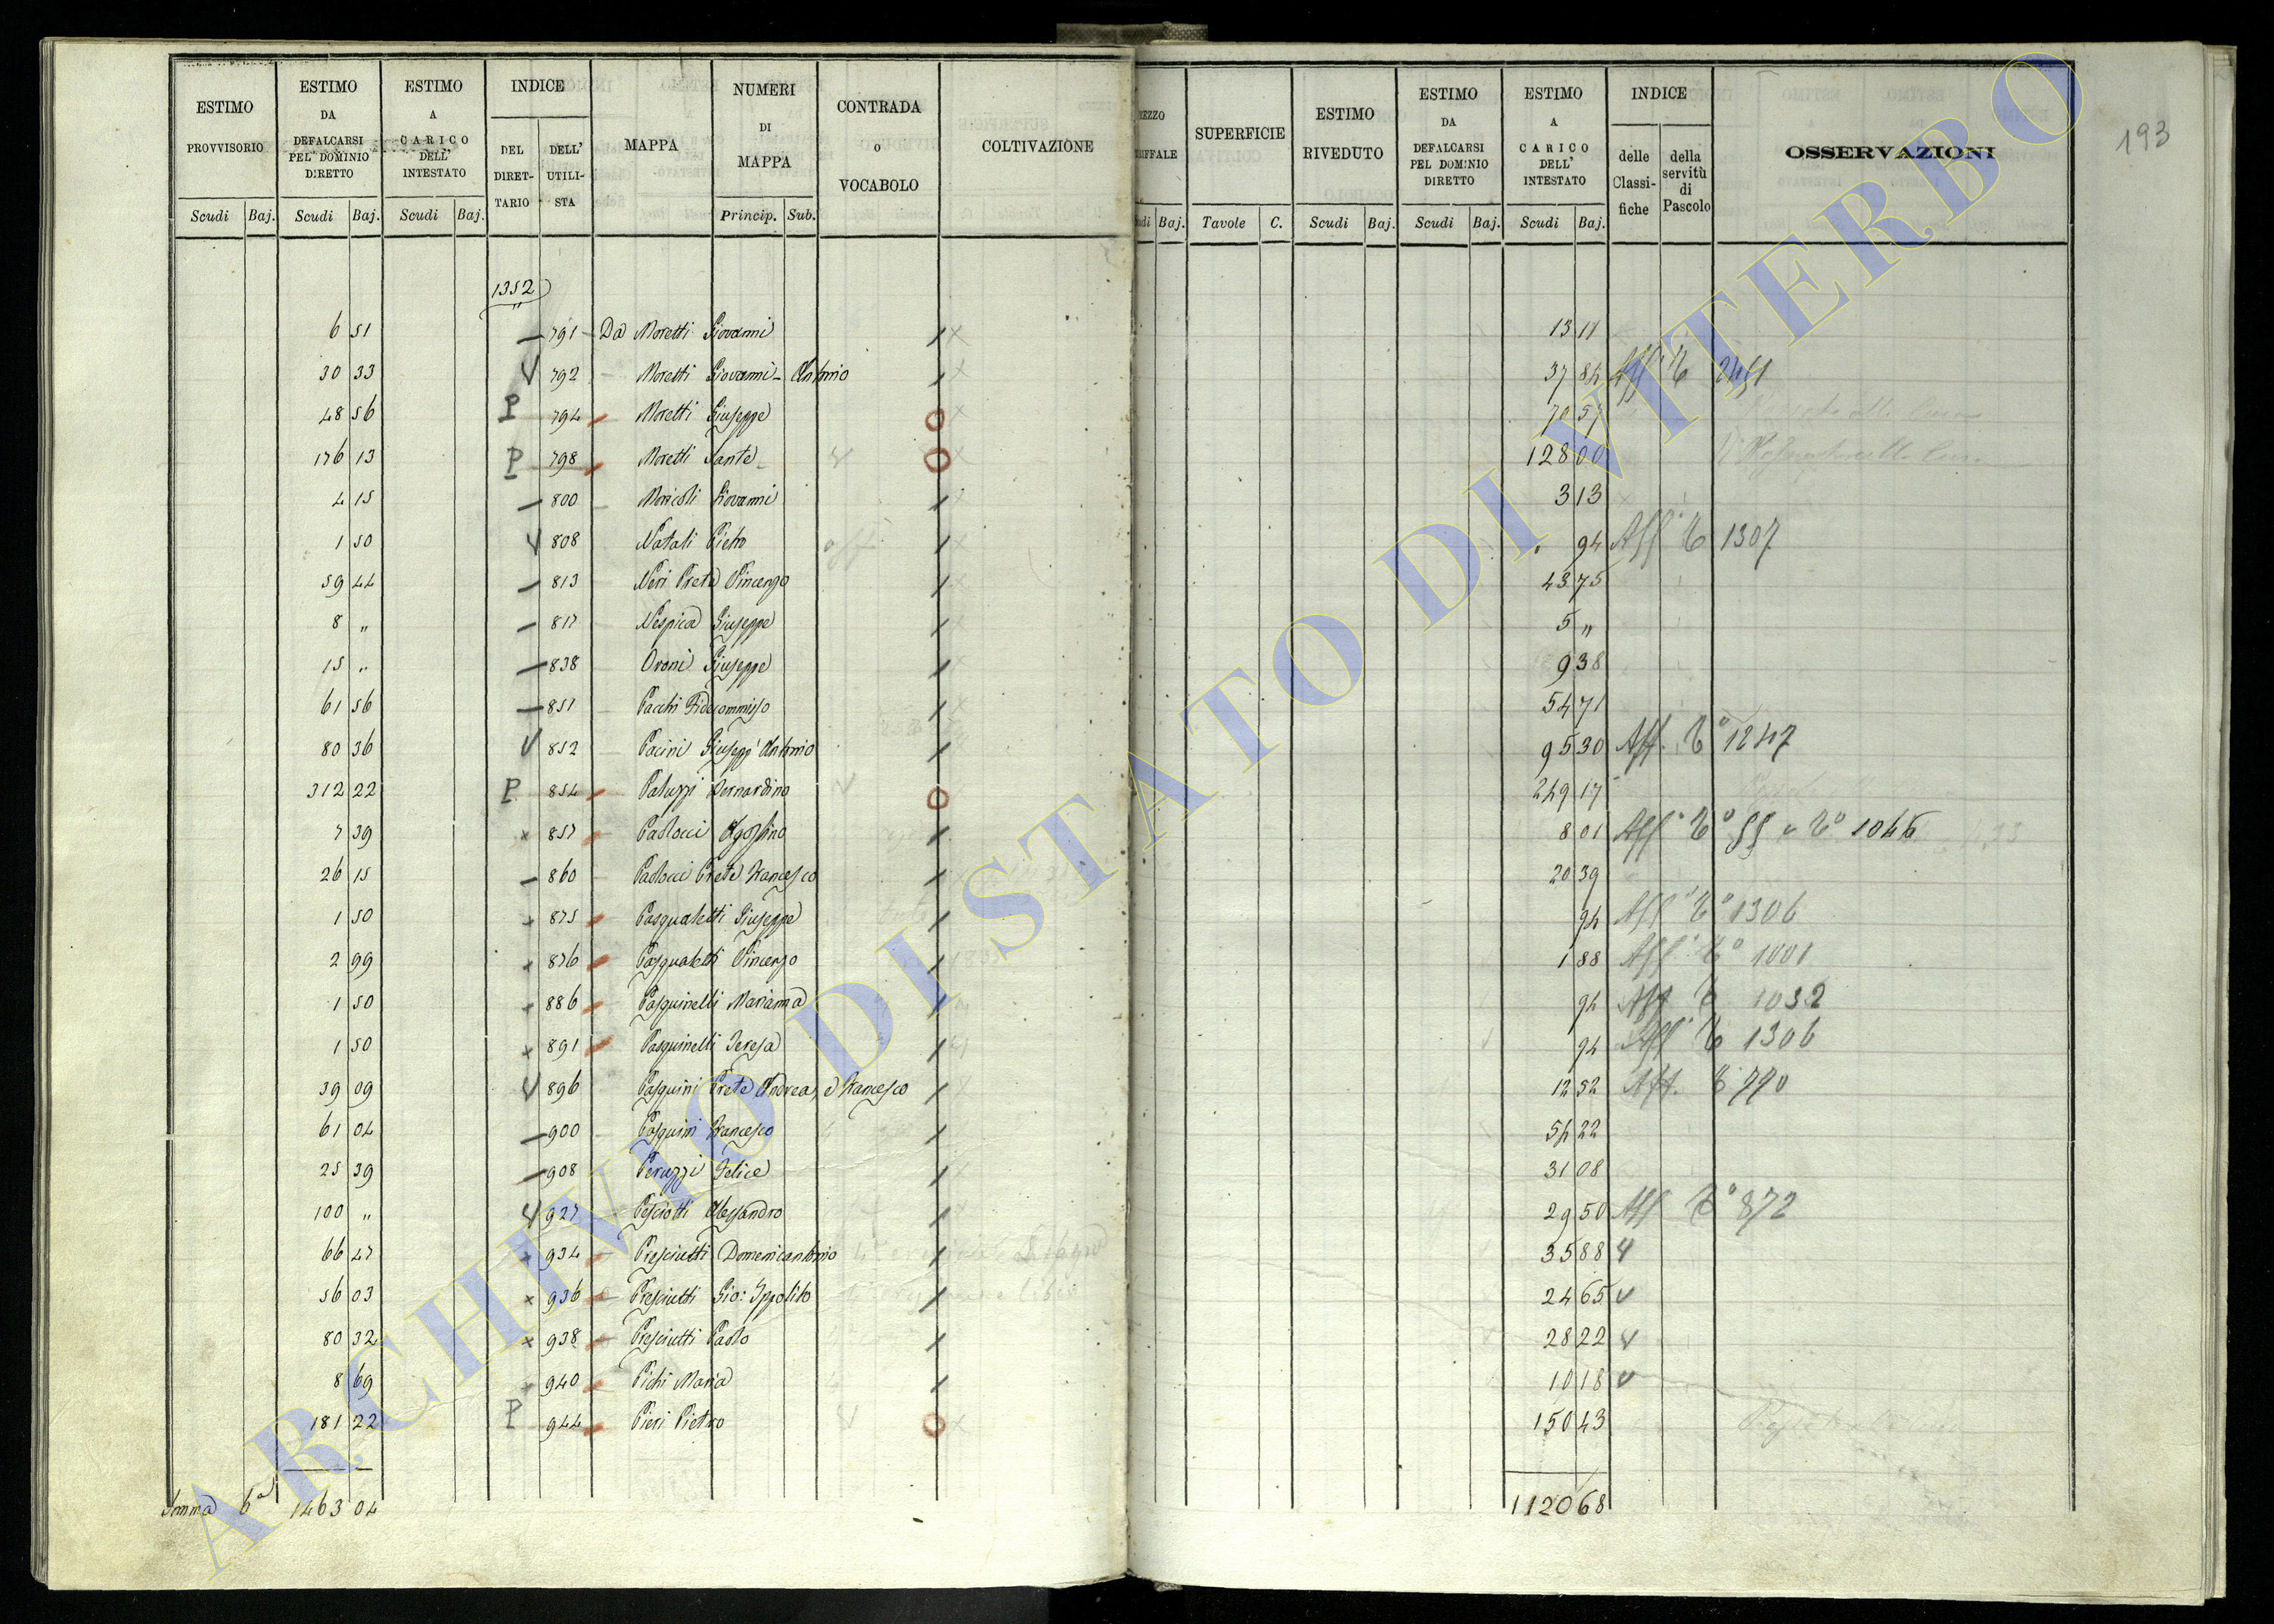 ESTIMO PROVVISORIO Scudi Baj.
ESTIMO DA DEFALCARSI PEL DOMINIO DIRETTO Scudi Baj.
ESTIMO A CARICO DELL' INTESTATO Scudi Baj.
INDICE DEL DIRET-TARIO DELL' UTILI-STA
MAPPA
NUMERI DI MAPPA Princip. Sub.
CONTRADA o VOCABOLO
COLTIVAZIONE
SUPERFICIE Tavole C.
ESTIMO RIVEDUTO Scudi Baj.
ESTIMO DA DEFALCARSI PEL DOMINIO DIRETTO Scudi Baj.
ESTIMO A CARICO DELL' INTESTATO Scudi Baj.
INDICE delle Classi-fiche della servitù di Pascolo
OSSERVAZIONI
193
1352
6 51 791 Da Moretti Giovanni 13 11
30 33 792 Moretti Giovanni Antonio 37 84
48 56 P 794 Moretti Giuseppe 70 57
176 13 P 798 Moretti Sante 128 00
4 15 800 Moricoli Giovanni 3 13
1 50 808 Natali Pietro 94 Aff 1307
59 44 813 Neri Prete Vincenzo 43 75
8 " 817 Nespica Giuseppe 5 "
15 " 838 Oroni Giuseppe 9 38
61 56 851 Pacchi Fidecommisso 54 71
80 36 852 Pacini Giusepp' Antonio 95 30 Aff. 1247
312 22 P 854 Paluzzi Bernardino 249 17
7 39 857 Paolocci Agostino 8 01 Aff
26 15 860 Paolocci Prete Francesco 20 39
1 50 875 Pasqualetti Giuseppe 94 Aff 1306
2 99 876 Pasqualetti Vincenzo 1 88 Aff 1001
1 50 886 Pasquinelli Marianna 94 Aff 1032
1 50 891 Pasquinelli Teresa 94 Aff 1306
39 09 896 Pasquini Prete Andrea, e Francesco 12 52 Aff. 790
61 04 900 Pasquini Francesco 54 22
25 39 908 Peruzzi Felice 31 08
100 " 927 Pesciotti Alessandro 29 50 Aff 872
66 47 934 Presciutti Domenicantonio 35 88
56 03 936 Presciutti Gio: Ippolito 24 65
80 32 938 Presciutti Paolo 28 22
8 69 940 Pichi Maria 10 18
181 22 P 944 Pieri Pietro 150 43
Somma 6a 1463 04 1120 68
ARCHIVIO DI STATO DI VITERBO